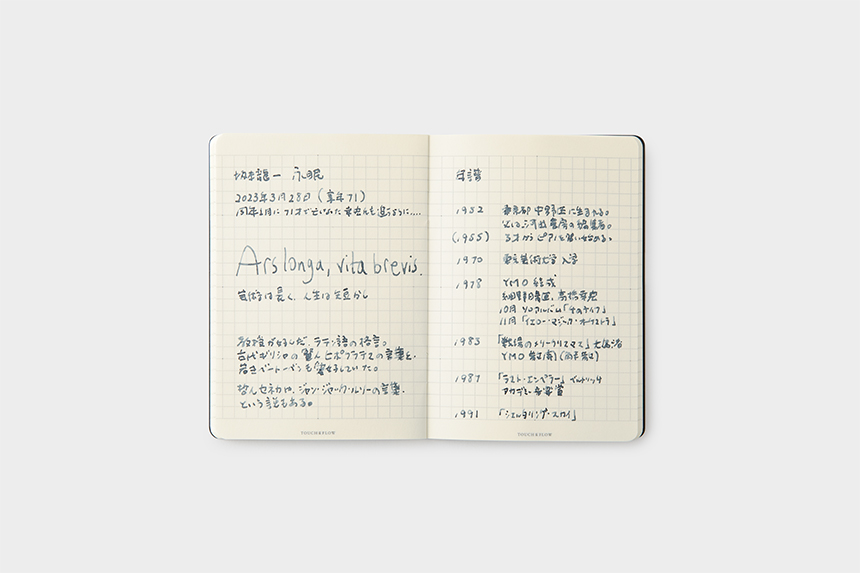 坂本龍一 永眠
2023年3月28日（享年71）
同年1月に71才で亡くなった幸宏を追うように....
Ars longa, vita brevis.
芸術は長く、人生は短かし
彼がましだ、ラテン語の格言。
古代ギリシャの賢人ヒポクラテスの言葉を、
若きベートーベンも
哲人セネカや、ジャン・ジャック・ルソーの言葉、
という説もある。
TOUCH & FLOW
年譜
1952 東京都中野区に生まれる。
父は河出書房の編集者。
(1955) 3才からピアノを習い始める。
1970 東京芸術大学 入学
1978 YMO 結成
細野晴臣、高橋幸宏
10月 ソロアルバム「千のナイフ」
11月「イエロー・マジック・オーケストラ」
1983 「戦場のメリークリスマス」大島渚
YMO 散開
1987 「ラスト・エンペラー」ベルトリッチ
アカデミー 賞
1991 「シェルタリング・スカイ」
TOUCH & FLOW